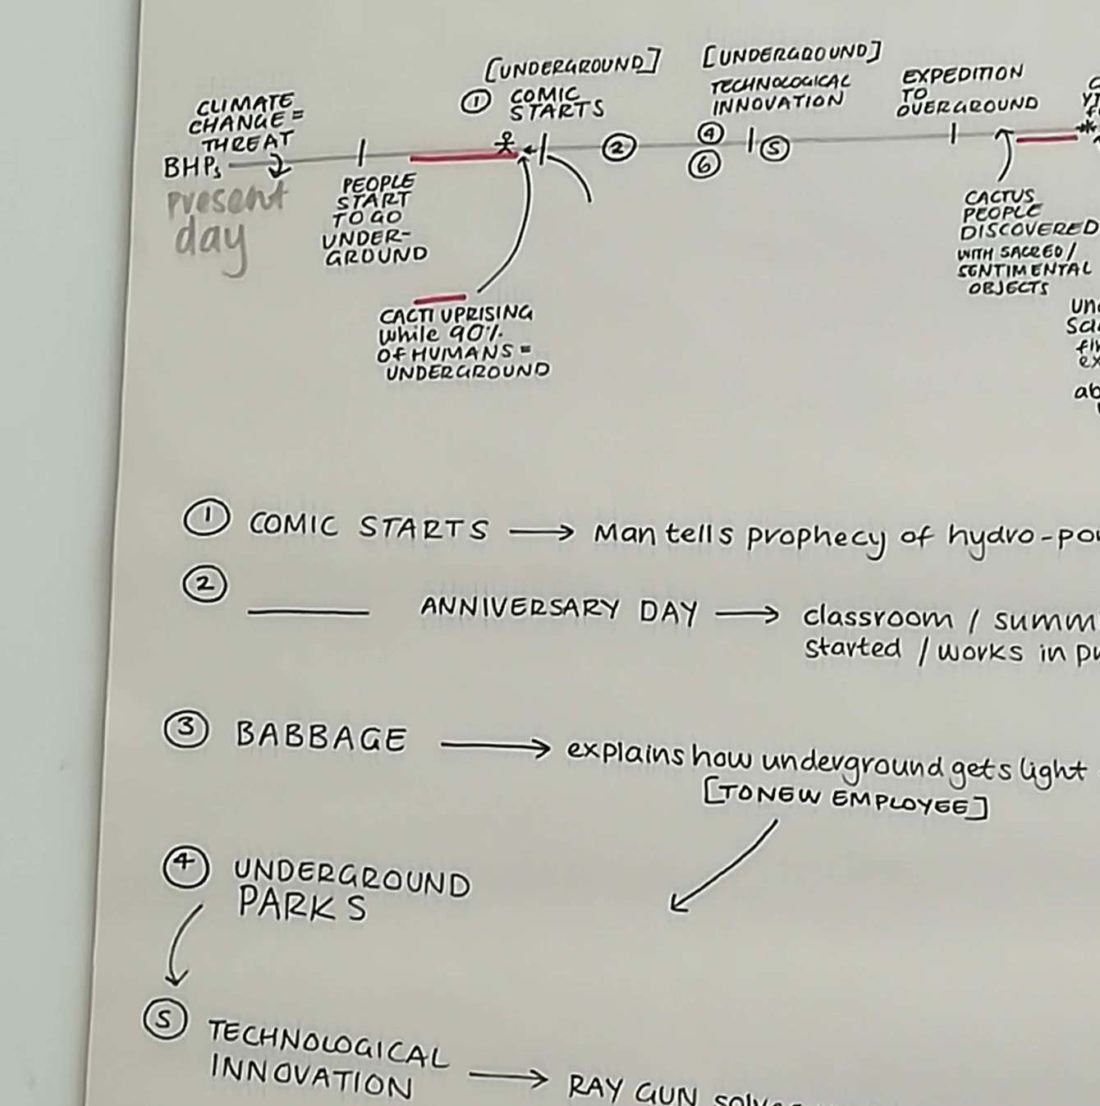 [UNDERGROUND]
① COMIC
STARTS
[UNDERGROUND]
TECHNOLOGICAL
INNOVATION
EXPEDITION
TO
OVERGROUND
CLIMATE
CHANGE =
THREAT
BHPs
Present
day
② ④ ⑥ ⑤
PEOPLE
START
TO GO
UNDER-
GROUND
CACTI UPRISING
while 90%
OF HUMANS =
UNDERGROUND
CACTUS
PEOPLE
DISCOVERED
WITH SACRED/
SENTIMENTAL
OBJECTS
① COMIC STARTS → Man tells prophecy of hydro-
② ANNIVERSARY DAY → classroom /
started / works in
③ BABBAGE → explains how underground gets light
[TO NEW EMPLOYEE]
④ UNDERGROUND
PARKS
⑤ TECHNOLOGICAL
INNOVATION → RAY GUN